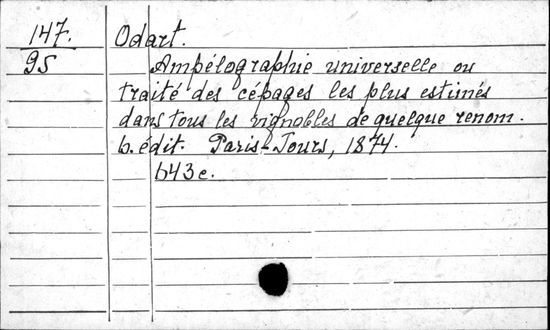 147. Odart.
95 Ampélographie universelle ou
traité des cépages les plus estimés
dans tous les vignobles de quelque renom.
6. édit. Paris-Tours, 1874.
643e.